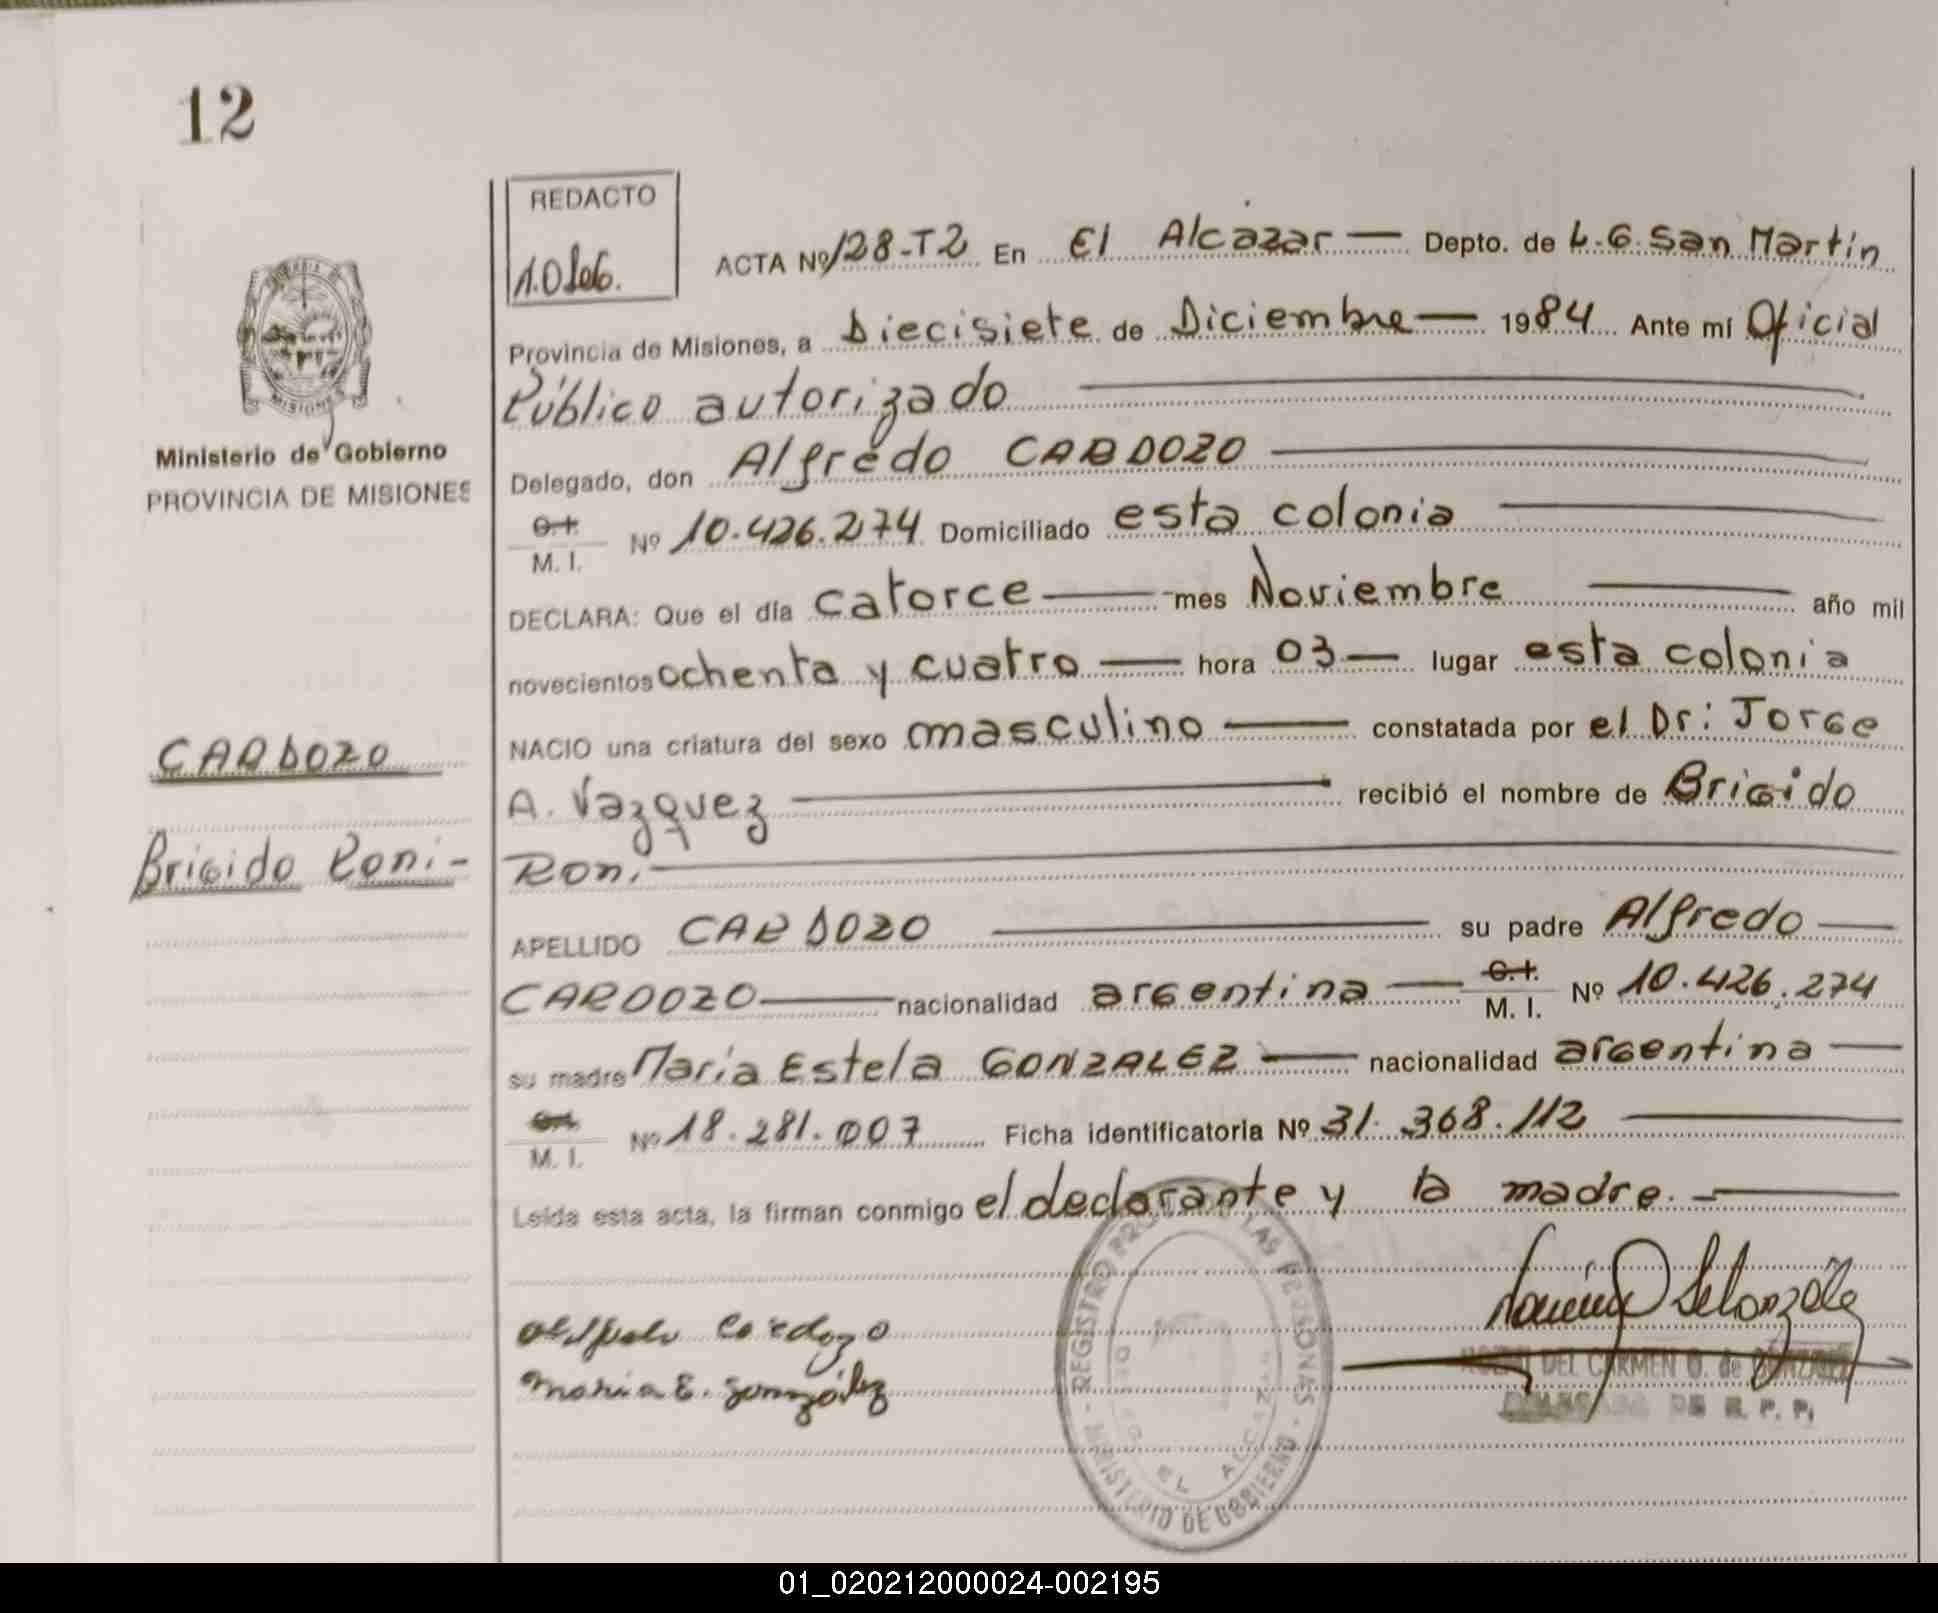 12
REDACTO
ACTA Nº 128-T2 En El Alcazar — Depto. de L.G. San Martin
Provincia de Misiones, a Diecisiete de Diciembre — 1984 Ante mí Oficial
Público autorizado
Delegado, don Alfredo CARDOZO
Ministerio de Gobierno
PROVINCIA DE MISIONES
C.I.
M. I. Nº 10.426.274 Domiciliado esta colonia
DECLARA: Que el día catorce — mes Noviembre — año mil
novecientos ochenta y cuatro — hora 03 — lugar esta colonia
NACIO una criatura del sexo masculino — constatada por el Dr: Jorge
A. Vazquez — recibió el nombre de Brigido
Roni
CARDOZO
Brigido Roni-
APELLIDO CARDOZO — su padre Alfredo —
CARDOZO — nacionalidad argentina — C.I. M. I. Nº 10.426.274
su madre María Estela GONZALEZ — nacionalidad argentina —
C.I.
M. I. Nº 18.281.007 Ficha identificatoria Nº 31.368.112
Leída esta acta, la firman conmigo el declarante y la madre. —
Alfredo Cardozo
Maria E. González
REGISTRO PROV. DE LAS PERSONAS
MINISTERIO DE GOBIERNO
EL ALCAZAR
DEL CARMEN G. de GONZALEZ
DE R. P. P.
01_020212000024-002195